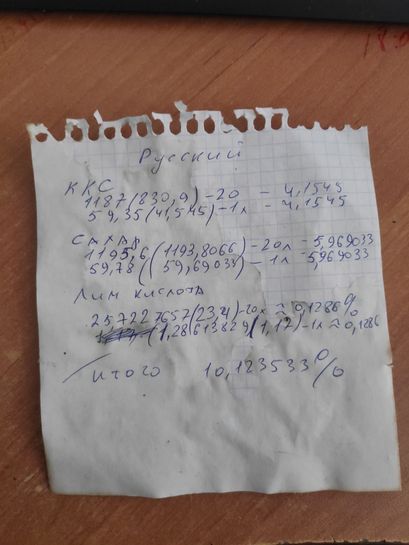 Русский
ККС
1187(830,9)-20 - 4,1545
59,35(41,545)-1л - 4,1545
САХАР
1195,6(1193,8066)-20л - 5,969033
59,78((59,69033)-1л - 5,969033
Лим кислота
25,7227657(23,4)-20л ≈ 0,1286%
(1,28613829(1,17)-1л ≈ 0,1286
итого 10,123533%